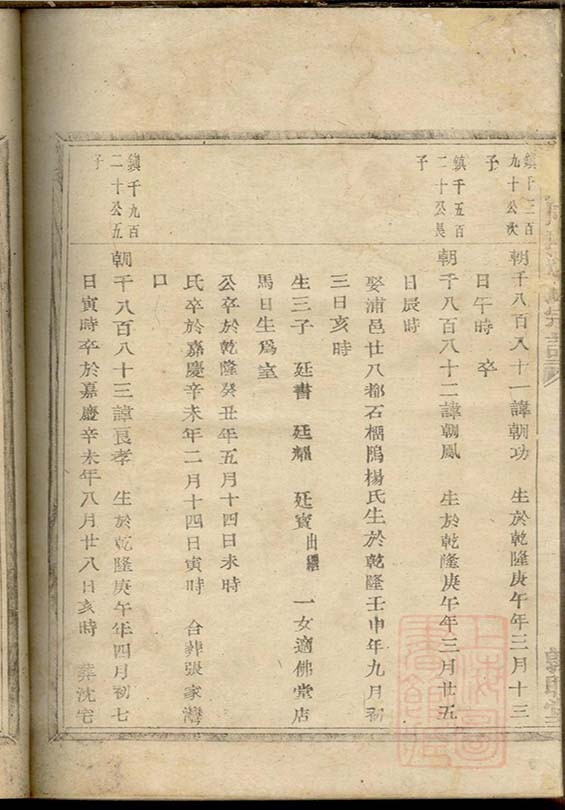 鎮千三百
九十公次
子
朝千八百八十一諱朝功 生於乾隆庚午年三月十三
日午時 卒
鎮千五百
二十公長
子
朝千八百八十二諱朝鳳 生於乾隆庚午年三月廿五
日辰時
娶浦邑廿八都石榴隝楊氏生於乾隆壬申年九月初
三日亥時
生三子 廷書 廷耀 廷寶出繼 一女適佛堂店
馬日生爲室
公卒於乾隆癸丑年五月十四日未時
氏卒於嘉慶辛未年二月十四日寅時 合葬張家灣
口
鎮千九百
二十公五
子
朝千八百八十三諱良孝 生於乾隆庚午年四月初七
日寅時卒於嘉慶辛未年八月廿八日亥時 葬沈宅
上海圖
書館藏